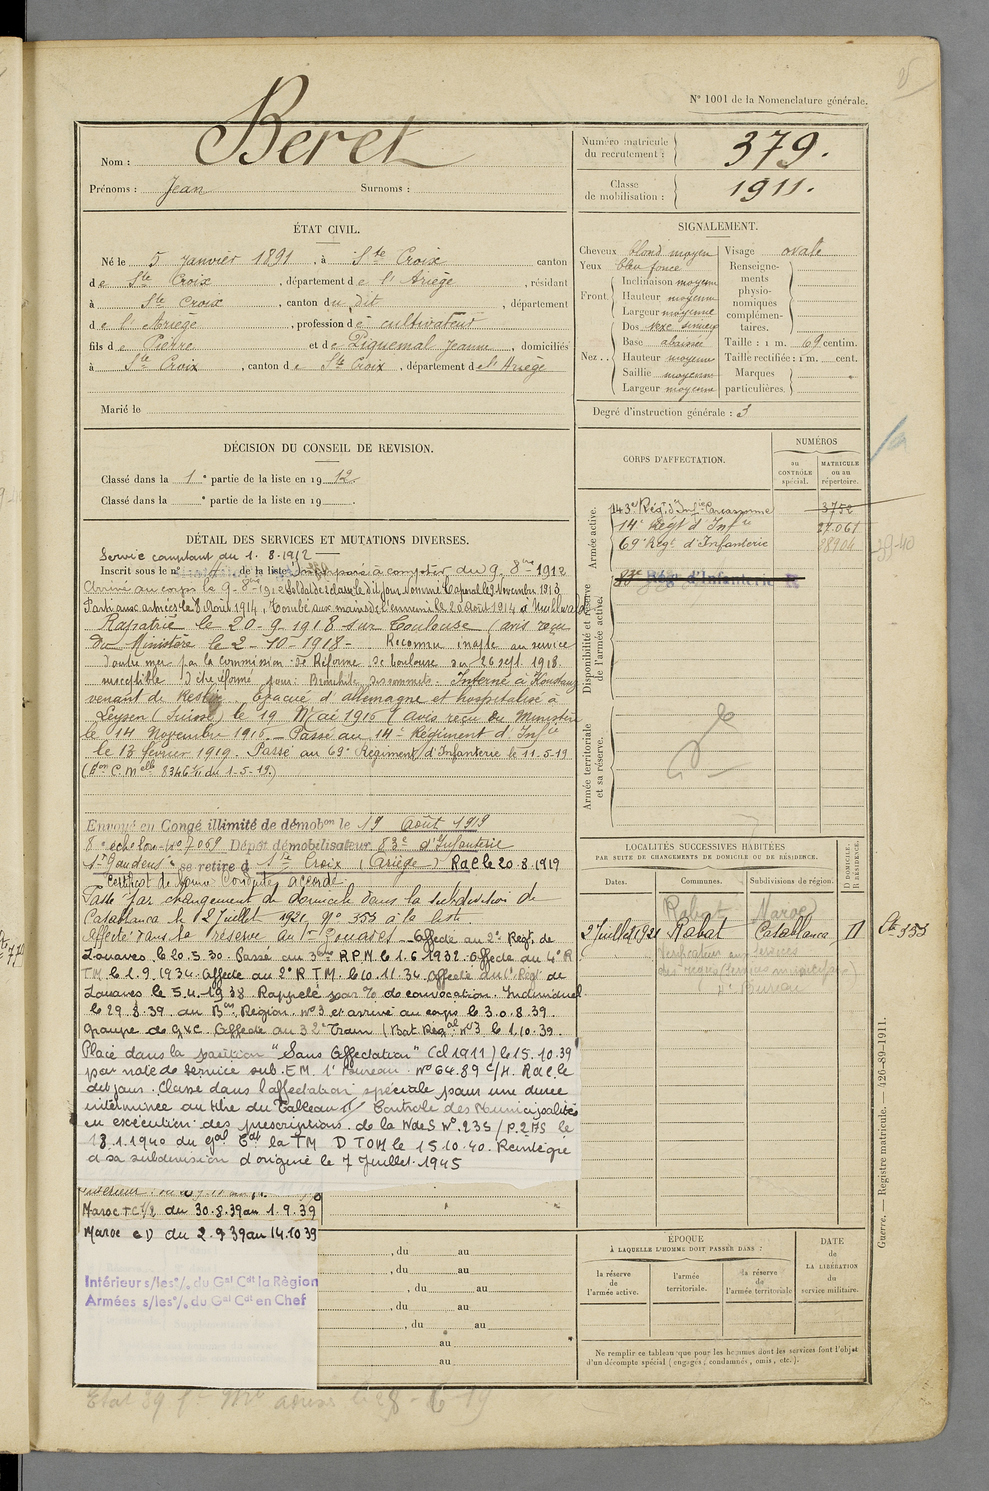 N° 1001 de la Nomenclature générale.
Nom : Beret
Prénoms : Jean Surnoms :
Numéro matricule du recrutement : 379.
Classe de mobilisation : 1911.
ÉTAT CIVIL.
Né le 5 janvier 1891, à Ste Croix canton
de Ste Croix, département de l'Ariège, résidant
à Ste Croix, canton du dit, département
de l'Ariège, profession de cultivateur
fils de Pierre et de Piquemal Jeanne, domiciliés
à Ste Croix, canton de Ste Croix, département de l'Ariège
Marié le
SIGNALEMENT.
Cheveux blond moyen
Yeux bleu foncé
Front : Inclinaison moyenne
Hauteur moyenne
Largeur moyenne
Nez : Dos sinueux
Base abaissée
Hauteur moyenne
Saillie moyenne
Largeur moyenne
Visage ovale
Renseignements physionomiques complémentaires.
Taille : 1 m. 69 centim.
Taille rectifiée : 1 m. cent.
Marques particulières.
Degré d'instruction générale : 3
DÉCISION DU CONSEIL DE REVISION.
Classé dans la 1e partie de la liste en 1912.
Classé dans la e partie de la liste en 19 .
DÉTAIL DES SERVICES ET MUTATIONS DIVERSES.
Service comptant du 1.8.1912
Inscrit sous le n° de la liste Incorporé à compter du 9. 8bre 1912
Arrivé au corps le 9-8bre-1912 Soldat de 2e classe le dit jour Nommé Caporal le 9 Novembre 1913
Parti aux armées le 8 Août 1914, Tombé aux mains de l'ennemi le 20 Août 1914 à
Rapatrié le 20-9-1918 sur Toulouse (avis reçu
du Ministère le 2-10-1918- Reconnu inapte au service
d'outre mer par la commission de Réforme de Toulouse du 26 sept. 1918.
susceptible d'être réformé pour: Bronchite des sommets. Interné à
venant de . Evacué d'allemagne et hospitalisé à
Leysen (Suisse) le 19 Mai 1916 (avis reçu du Ministère
le 14 Novembre 1916 - Passé au 14e Régiment d'Infie
le 13 février 1919. Passé au 69e Régiment d'Infanterie le 11-5-19
(Bon C. Melle 8346 du 1-5-19.)
Envoyé en Congé illimité de démobon le 19 Août 1919
8e échelon - No 7069 Dépôt démobilisateur 83e d'Infanterie
St Gaudens se retire à Ste Croix (Ariège) RdC le 20.8.1919
Certificat de bonne Conduite accordé.
Passé par changement de domicile dans la subdivision de
Casablanca le 2 Juillet 1921, No 353 à la liste.
Affecté dans la réserve au 1er Zouaves - Affecté au 2e Regt de
Zouaves le 20.5.30. Passé au 3ème R P.M. le 1.6 1932. Affecté au 4e R
TM le 1.9.1934. Affecté au 2e R T M. le 10.11.34. Affecté au 1er Régt de
Zouaves le 5.4.1938 Rappelé par o/ de convocation. Individuel
le 29.8.39 au Bon Région. No 3 et arrivé au corps le 30.8.39.
groupe de GVC. Affecté au 32e Train (Bat. Régal No 3 le 1.10.39.
Placé dans la position "Sans Affectation" (cl 1911) le 15.10.39
par note de service sub. EM. 1er Bureau. No 64.89 C/H. RdC le
dit jour. Classé dans l'affectation spéciale pour une durée
interminée au titre du Tableau II / Contrôle des Municipalités
en exécution des prescriptions de la NdeS No. 235/P.2AS le
18.1.1940 du Gal Cdt la TM D TOM le 15.10.40. Réintégré
à sa subdivision d'origine le 7 Juillet 1945
Maroc T C 1/2 du 30.8.39 au 1.9.39
Maroc C D du 2.9.39 au 14.10 39
Intérieur s/les o/. du Gal Cdt la Région
Armées s/les o/. du Gal Cdt en Chef
, du au
, du au
, du au
, du au
, du au
au
au
CORPS D'AFFECTATION.
NUMÉROS
au CONTRÔLE spécial.
MATRICULE ou au répertoire.
Armée active.
143e Régt d'Infie Carcassonne 3752
14e Régt d'Infie 27.061
69e Régt d'Infanterie 28904
Disponibilité et réserve de l'armée active.
83e Régt d'Infanterie
Armée territoriale et sa réserve.
LOCALITÉS SUCCESSIVES HABITÉES
PAR SUITE DE CHANGEMENTS DE DOMICILE OU DE RÉSIDENCE.
Dates. Communes. Subdivisions de région. D DOMICILE. R RÉSIDENCE.
Rabat Maroc
2 Juillet 1921 Rabat Casablanca D Ct 353
Vérificateur aux Services
Bureau
ÉPOQUE
À LAQUELLE L'HOMME DOIT PASSER DANS :
la réserve de l'armée active.
l'armée territoriale.
la réserve de l'armée territoriale
DATE de LA LIBÉRATION du service militaire.
Ne remplir ce tableau que pour les hommes dont les services font l'objet
d'un décompte spécial (engagés, condamnés, omis, etc.).
Guerre. — Registre matricule. — 426-89-1911.